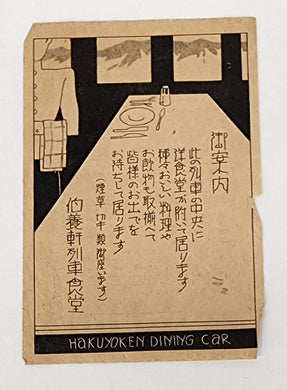 御案内
此の列車の中央に
洋食堂が附いて居ります
種々おいしい料理や
お飲物も取揃へて
皆様のお出でを
お待ちして居ります
(煙草 切手類 御座います)
伯養軒列車食堂
HAKUYOKEN DINING CAR